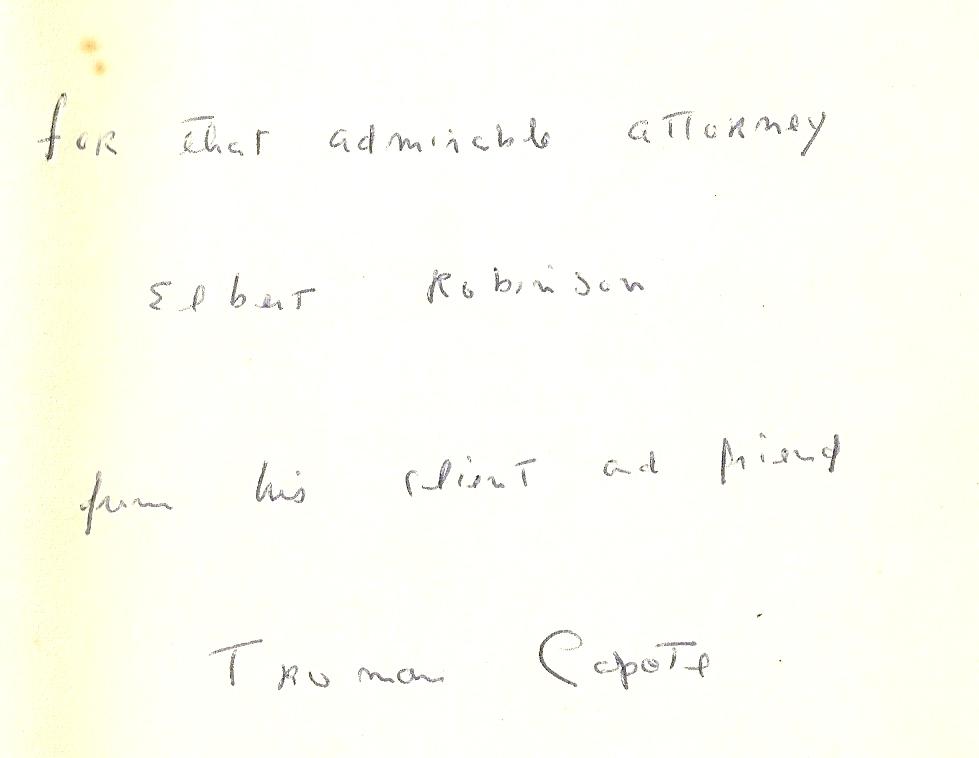 for that admirable attorney
Elbert Robinson
from his client and friend
Truman Capote